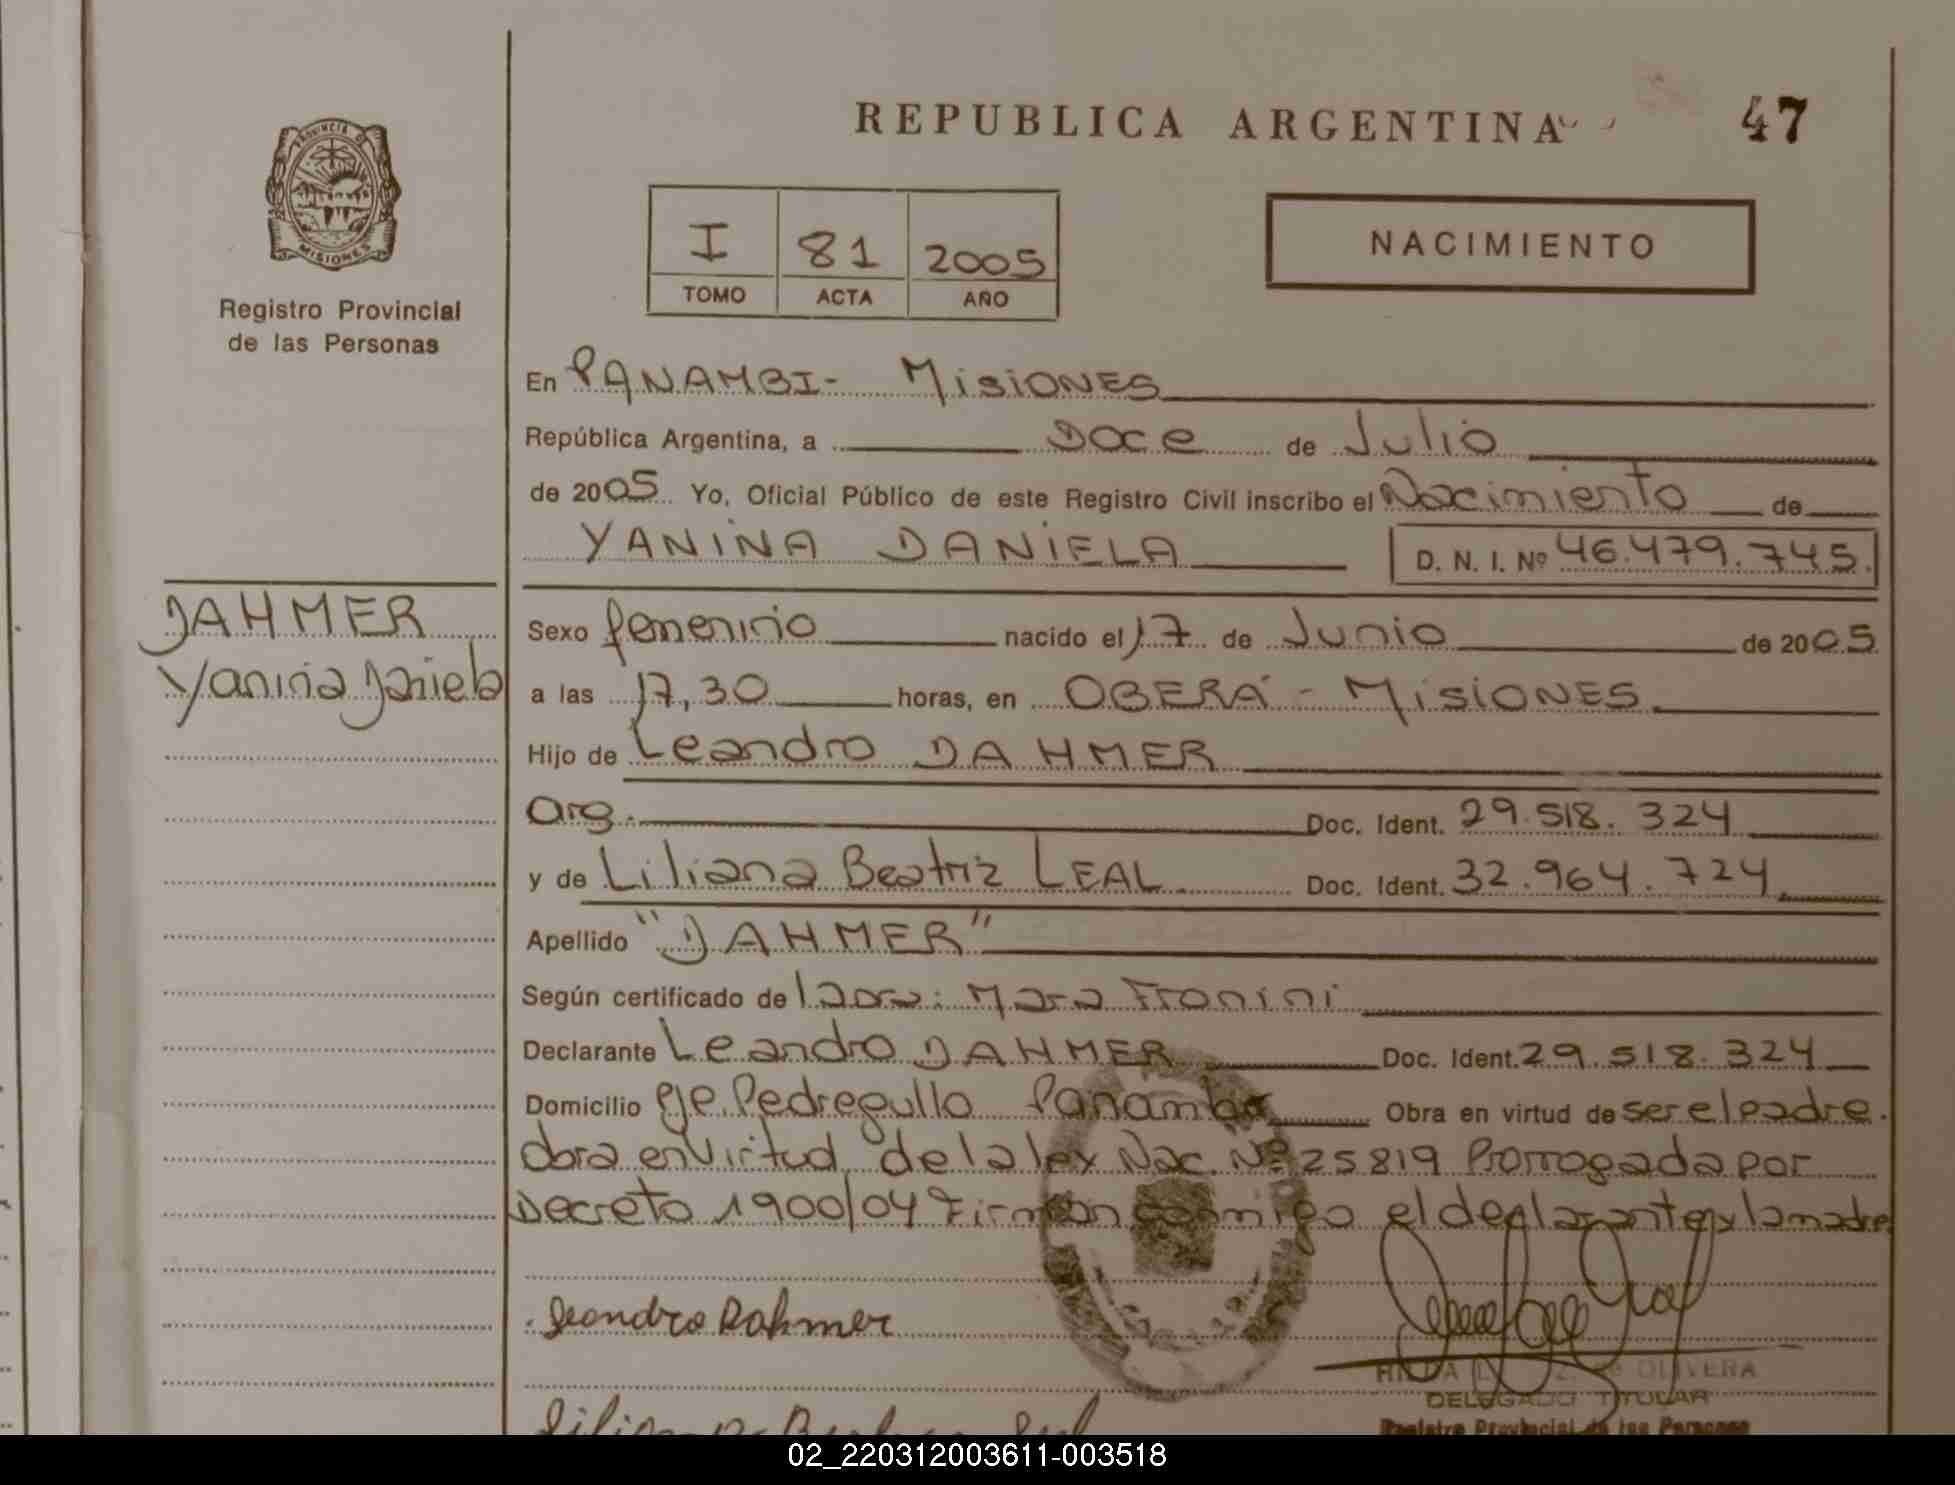 REPUBLICA ARGENTINA
47
PROVINCIA DE MISIONES
Registro Provincial
de las Personas
I 81 2005
TOMO ACTA AÑO
NACIMIENTO
En PANAMBI- MisiONES
República Argentina, a Doce de Julio
de 2005 Yo, Oficial Público de este Registro Civil inscribo el Nacimiento de
YANINA DANIELA D. N. I. Nº 46.479.745.
DAHMER
Yanina Daniela
Sexo femenino nacido el 17 de Junio de 2005
a las 17,30 horas, en OBERÁ - MisiONES
Hijo de Leandro DAHMER
Arg. Doc. Ident. 29.518.324
y de Liliana Beatriz LEAL Doc. Ident. 32.964.724
Apellido "DAHMER"
Según certificado de Mara Fronini
Declarante Leandro DAHMER Doc. Ident. 29.518.324
Domicilio eje. Pedregullo Panambí Obra en virtud de ser el padre.
Obra en virtud de la ley Nac. Nº 25819 Prorrogada por
Decreto 1900/04 Firman conmigo el declarante y la madre
Leandro Dahmer
OLIVERA
DELEGADO TITULAR
Registro Provincial de las Personas
02_220312003611-003518